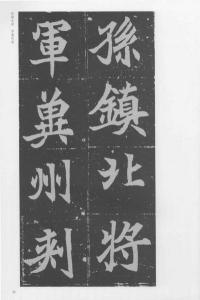 孫鎮北将
軍冀州刺